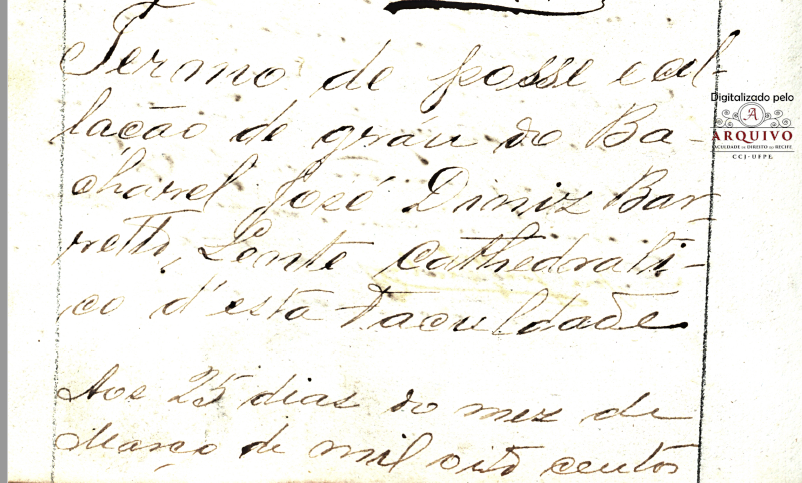 Termo de posse e col-
lação de gráu do Ba-
charel José Diniz Bar-
retto, Lente Cathedrati-
co d'esta Faculdade
Aos 25 dias do mez de
Março de mil oito centos
Digitalizado pelo
A
ARQUIVO
FACULDADE DE DIREITO DO RECIFE
CCJ-UFPE